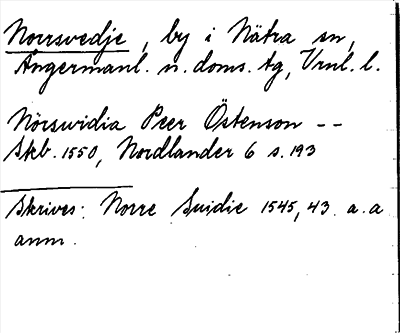 Norrsvedje, by i Nätra sn,
Ångermanl. n. doms. tg, Vrnl. l.
Nörswidia Peer Östenson --
Skb. 1550, Nordlander 6 s. 193
Skrives: Norre Suidie 1545, 43 a.a
anm.